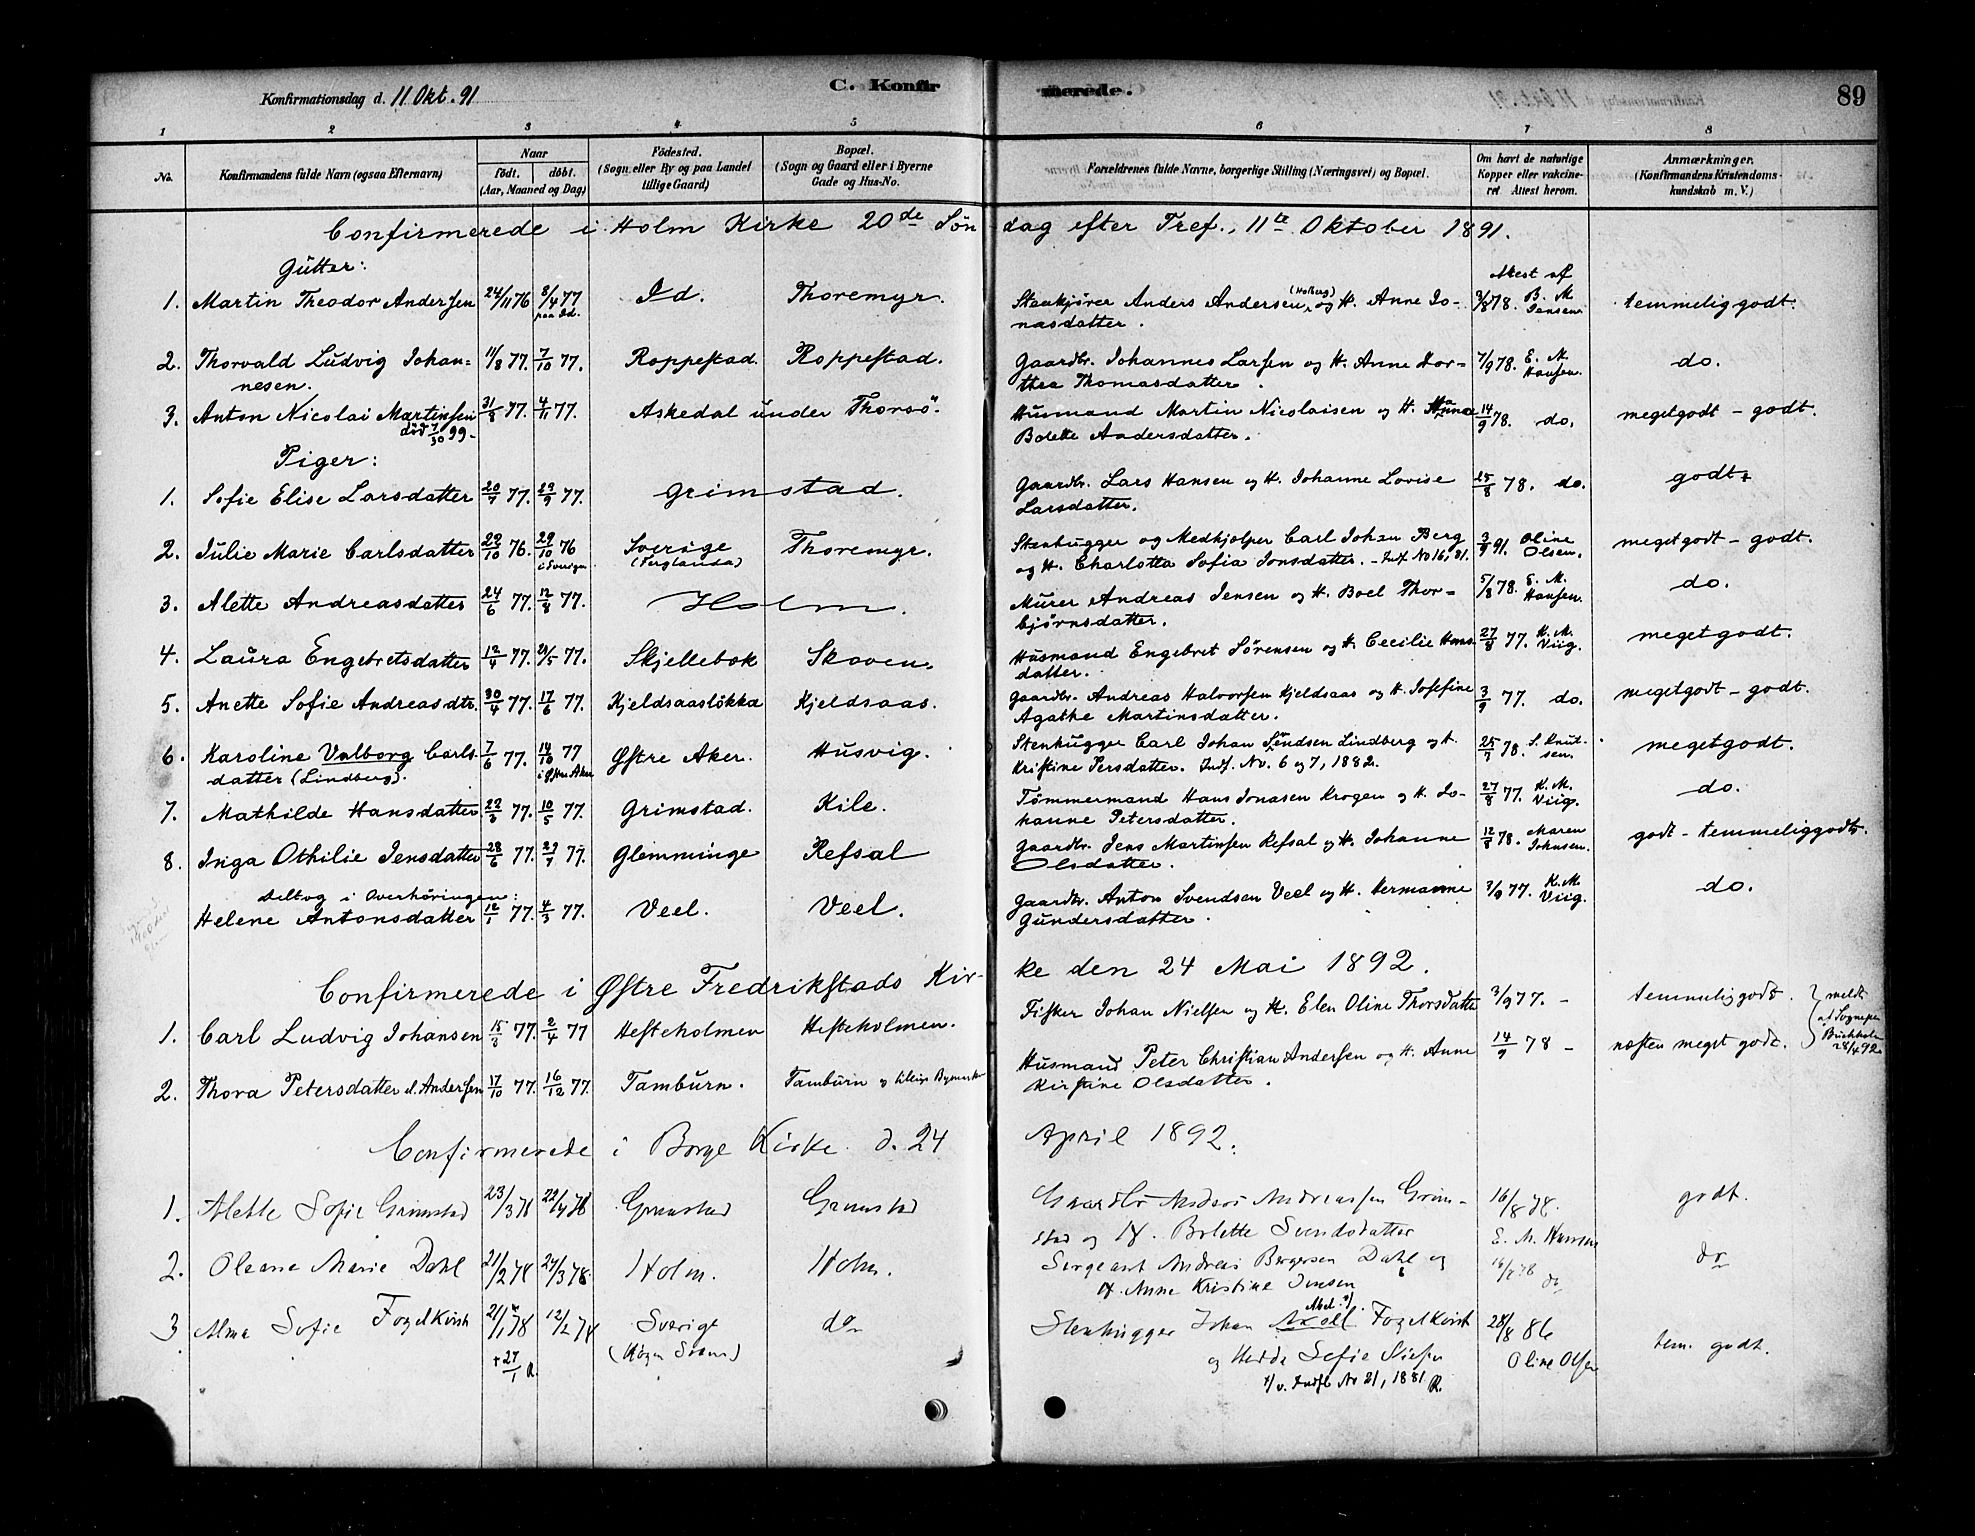 Konfirmationsdag d. 11 Okt. 91
C. Konfirmerede.
89
1 2 3 4 5 6 7 8
No.
Konfirmandens fulde Navn (ogsaa Efternavn)
Naar
födt. döbt.
(Aar, Maaned og Dag)
Födested.
(Sogn eller By og paa Landet
tillige Gaard)
Bopæl.
(Sogn og Gaard eller i Byerne
Gade og Hus-No.
Forældrenes fulde Navne, borgerlige Stilling (Næringsvei) og Bopæl.
Om havt de naturlige
Kopper eller vakcine-
ret Attest herom.
Anmærkninger.
(Konfirmandens Kristendoms-
kundskab m. V.)
Confirmerede i Holm Kirke 20de Søndag efter Tref., 11te Oktober 1891.
Gütter:
1. Martin Theodor Andersen 24/11 76 8/4 77 Id. Thoremyr. Stenkjører Anders Andersen (Holberg) og H. Anne Jo- Attest af 9/8 78. B. M. temmelig godt.
paa Id. nasdatter. Jensen
2. Thorvald Ludvig Johan- 11/8 77. 7/10 77. Roppestad. Roppestad. Gaardbr. Johannes Larsen og H. Anne Dor- 7/9 78. E. M. do.
nesen. thea Thomasdatter. Hansen.
3. Anton Nicolai Martinsen 31/8 77. 4/11 77. Askedal under Thorsö. Husmand Martin Nicolaisen og H. Anna 14/9 78. do. meget godt - godt.
död 7/30 99. Bolette Andersdatter.
Piger:
1. Sofie Elise Larsdatter 20/7 77. 23/9 77. Grimstad. Gaardbr. Lars Hansen og H. Johanne Lovise 25/8 78. do. godt
Larsdatter.
2. Julie Marie Carlsdatter 22/10 76. 29/10 76 Sverige Thoremyr. Stenhugger og Medhjælper Carl Johan Berg 3/9 91. Oline meget godt - godt.
i Sverige (Ferglanda) og H. Charlotta Sofia Jonsdatter. - Indf. No 16, 81. Olsen.
3. Alette Andreasdatter 24/6 77. 12/8 77. Holm. Murer Andreas Jensen og H. Boel Thor- 5/8 78. E. M. do.
bjørnsdatter. Hansen.
4. Laura Engebretsdatter 12/4 77. 21/5 77. Skjellebok Skoven. Husmand Engebret Sörensen og H. Cecilie Hans 27/8 77. K. M. meget godt.
datter. Viig.
5. Anette Sofie Andreasdtr. 30/4 77. 17/6 77. Kjeldsaaslökka Kjeldsaas. Gaardbr. Andreas Halvorsen Kjeldsaas og H. Josefine 3/9 77. do. meget godt - godt.
Agathe Martinsdatter.
6. Karoline Valborg Carls- 7/6 77. 14/10 77 Østre Aker. Husvig. Stenhugger Carl Johan Svendsen Lindberg og H. 25/7 78. S. Knut- meget godt.
datter (Lindberg). i Østre Aker Kristine Persdatter. Indf. No. 6 og 7, 1882. sen.
7. Mathilde Hansdatter 77. 10/5 77. Grimstad. Kile. Tömmermand Hans Jonasen Krogen og H. Jo- 27/8 77. K. M. do.
hanne Petersdatter. Viig.
8. Inga Othilie Jensdatter 28/6 77. 29/7 77. Glemminge Refsal Gaardbr. Jens Martinsen Refsal og H. Johanne 12/8 78. Maren godt - temmelig godt.
Olsdatter. Johnsen.
deltog i Overhöringen:
Helene Antonsdatter 12/1 77. 4/3 77. Veel. Veel. Gaardbr. Anton Svendsen Veel og H. Hermanne 3/9 77. K. M. do.
Gundersdatter. Viig.
Confirmerede i Østre Fredrikstads Kirke den 24 Mai 1892.
1. Carl Ludvig Johansen 77. 2/4 77 Hesteholmen Hesteholmen. Fisker Johan Nielsen og H. Elen Oline Thorsdatter 3/9 77. - temmelig godt. meldt
2. Thora Petersdatter d. Andersen 17/10 77. 16/12 77. Tamburn. Tamburn Husmand Peter Christian Andersen og H. Anne 14/9 78 - næsten meget godt. af Sognepr.
Kirstine Olsdatter. 28/4 92.
Confirmerede i Borge Kirke d. 24 April 1892.
1. Alette Sofie Grimstad 23/3 78 22/4 78 Grimstad Grimstad Gaardbr Anders Andreassen Grim- 16/8 78. godt.
stad og H. Bolette Svendsdatter E. M. Hansen
2. Oleane Marie Dahl 21/2 78 24/3 78. Holm. Holm. Sergeant Andreas Bergersen Dahl og 16/8 78 do
H. Anne Kristine Jensen do
3 Alma Sofie Fogelkvist 21/1 78 12/2 78 Sverige do Stenhugger Johan Axell Abel Fogelkvist 28/8 86 tem. godt.
+ 27/1 R. og Hedda Sofie Oline Olsen
v. Indf. No 21, 1881 R.